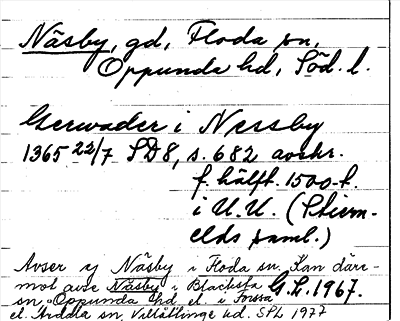 Näsby, gd, Floda sn,
Oppunda hd, Söd. l.
Gerwader i Nessby
1365 22/7 SD 8, s. 682 avskr.
f. hälft. 1500-t.
i U. U. (Stiern-
elds saml.)
Avser ej Näsby i Floda sn. Kan däre-
mot avse Näsby i Blacksta G. L. 1967.
sn, Oppunda hd el. i Forssa
el. Årdala sn, Villåttinge hd. SPL 1977